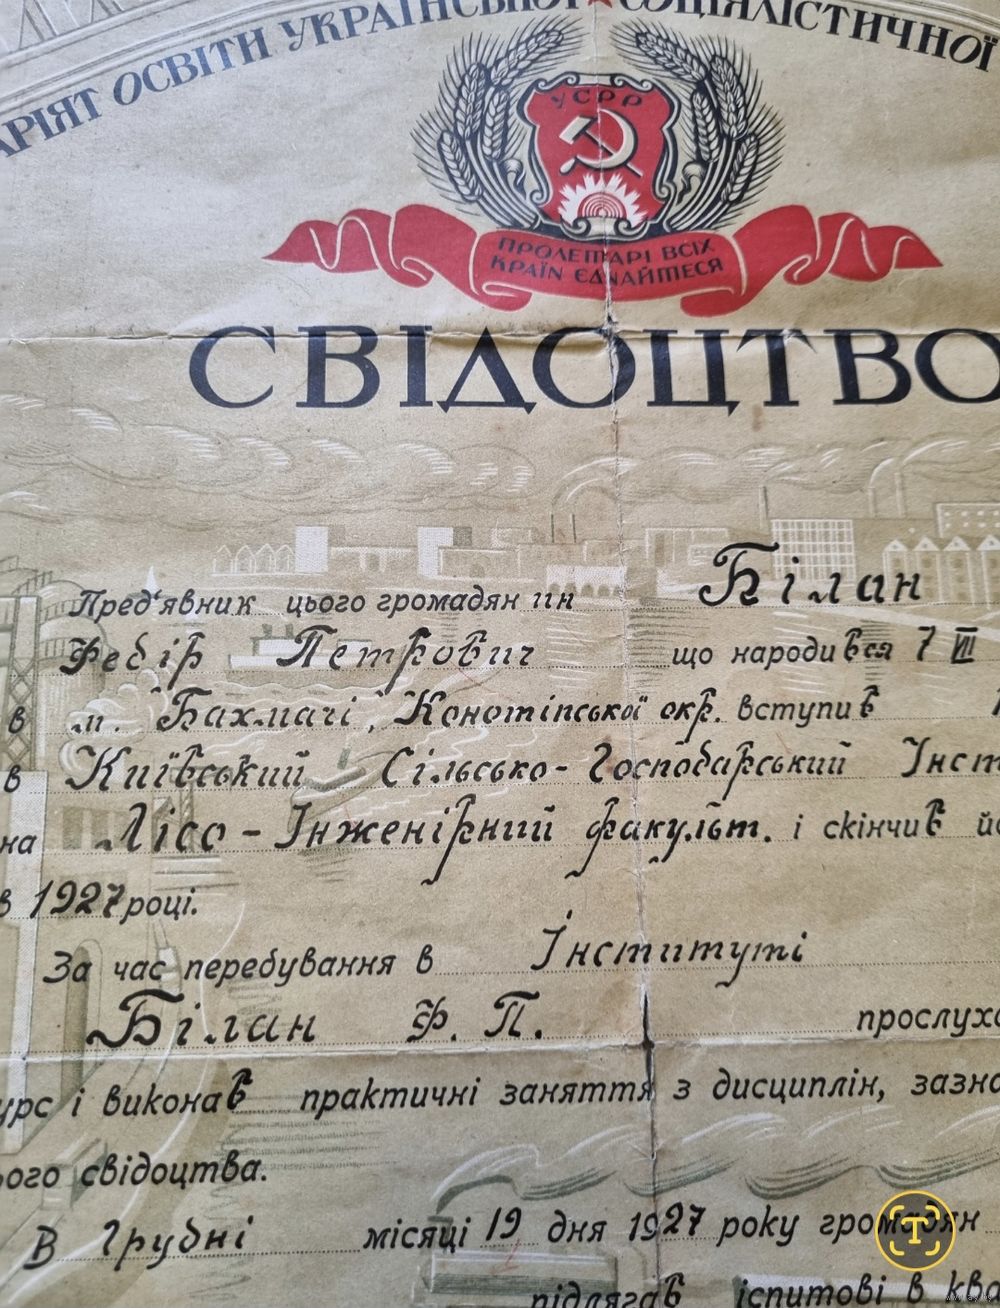 АРІЯТ ОСВІТИ УКРАЇНСЬКОЇ СОЦІЯЛІСТИЧНОЇ
УСРР
ПРОЛЕТАРІ ВСІХ
КРАЇН ЄДНАЙТЕСЯ
СВІДОЦТВО
Пред'явник цього громадянин Білан
Федір Петрович що народився 7 VII
в м. Бахмачі, Конотіпської окр. вступив
в Київський Сільсько-Господарський Інст
на Лісо-Інженірний факульт. і скінчив йо
в 1927 році.
За час перебування в Інституті
Білан Ф. П. прослухо
урс і виконав практичні заняття з дисциплін, зазна
ього свідоцтва.
В Грудні місяці 19 дня 1927 року громадян
підлягав іспитові в ква